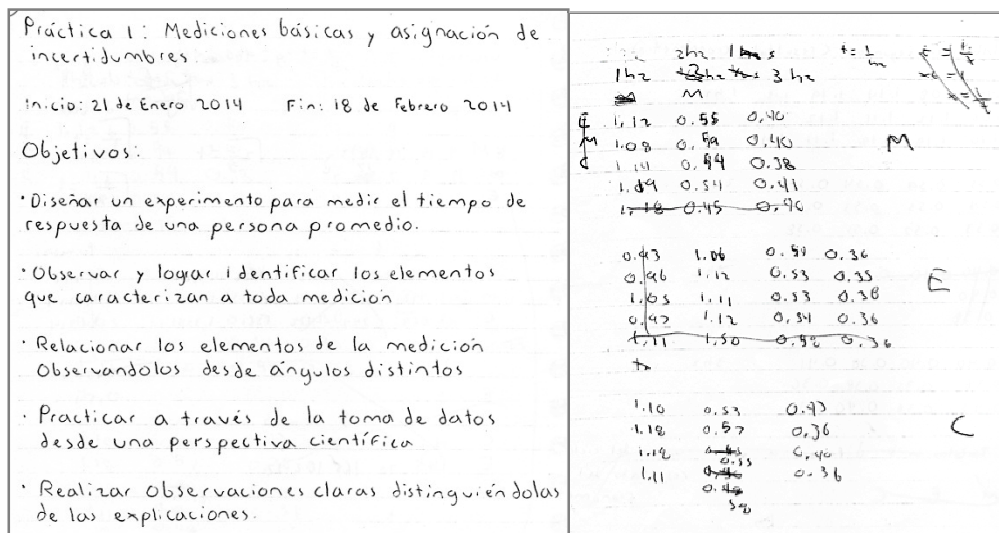 Práctica 1: Mediciones básicas y asignación de
incertidumbres.
Inicio: 21 de Enero 2014 Fin: 18 de Febrero 2014
Objetivos:
·Diseñar un experimento para medir el tiempo de
respuesta de una persona promedio.
·Observar y lograr identificar los elementos
que caracterizan a toda medición
· Relacionar los elementos de la medición
Observandolos desde ángulos distintos
· Practicar a través de la toma de datos
desde una perspectiva científica
· Realizar observaciones claras distinguiéndolas
de las explicaciones.
2hz
1hz 3 hz
M
1.12 0.55 0.40
1.08 0.40 M
0.38
1.09 0.54 0.41
1.18 0.45
0.93 1.06 0.36
0.96 1.12 0.53 0.35 E
1.05 1.11 0.53 0.38
1.12 0.36
1.11 1.50 0.36
1.10 0.53
1.18 0.57 0.36 C
1.12 0.40
0.55
1.11 0.36